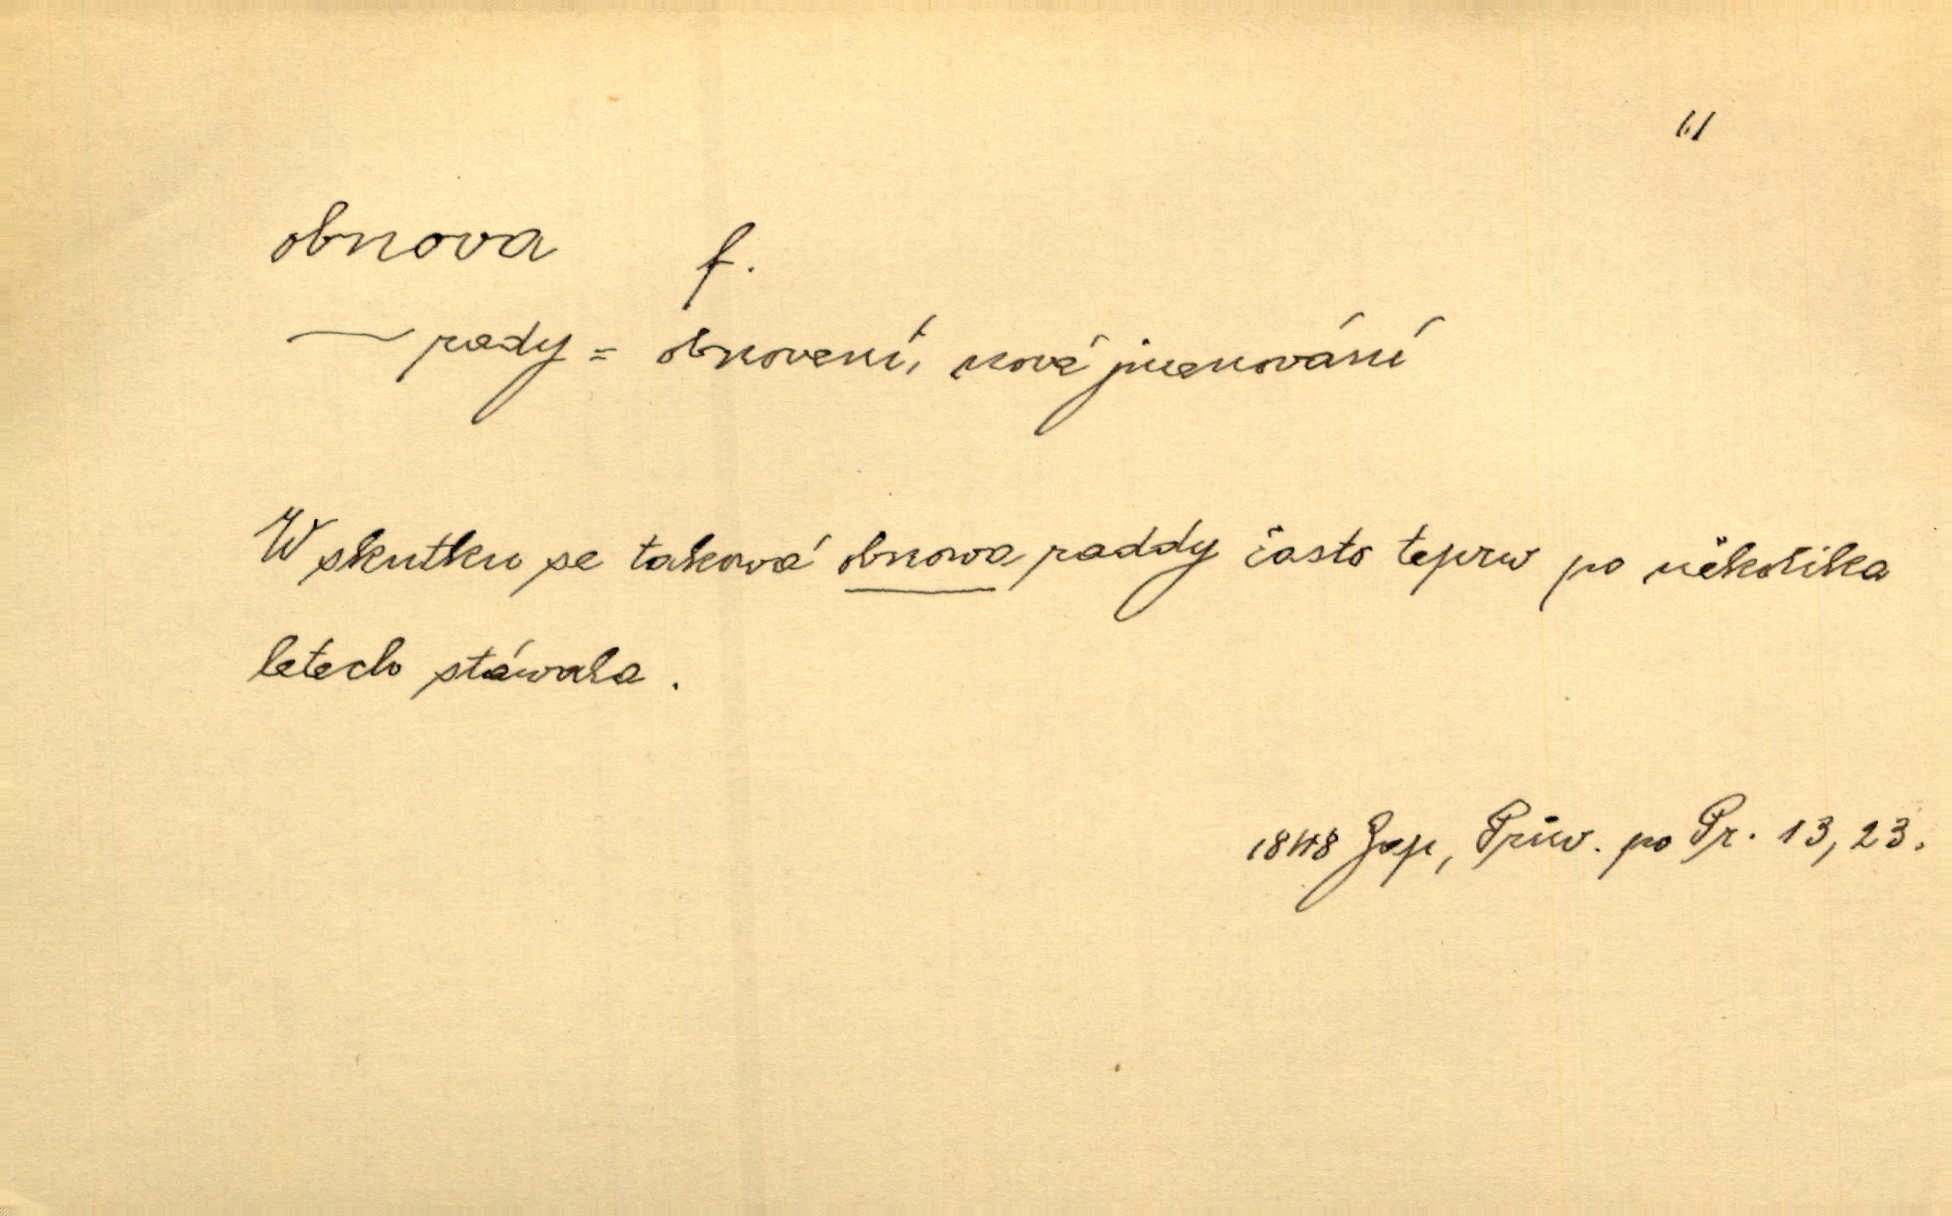 obnova f.
— rady = obnovení, nové jmenování
W skutku se taková obnowa raddy často teprw po několika
letech stáwala.
1848 Zap, Průw. po Pr. 13, 23.